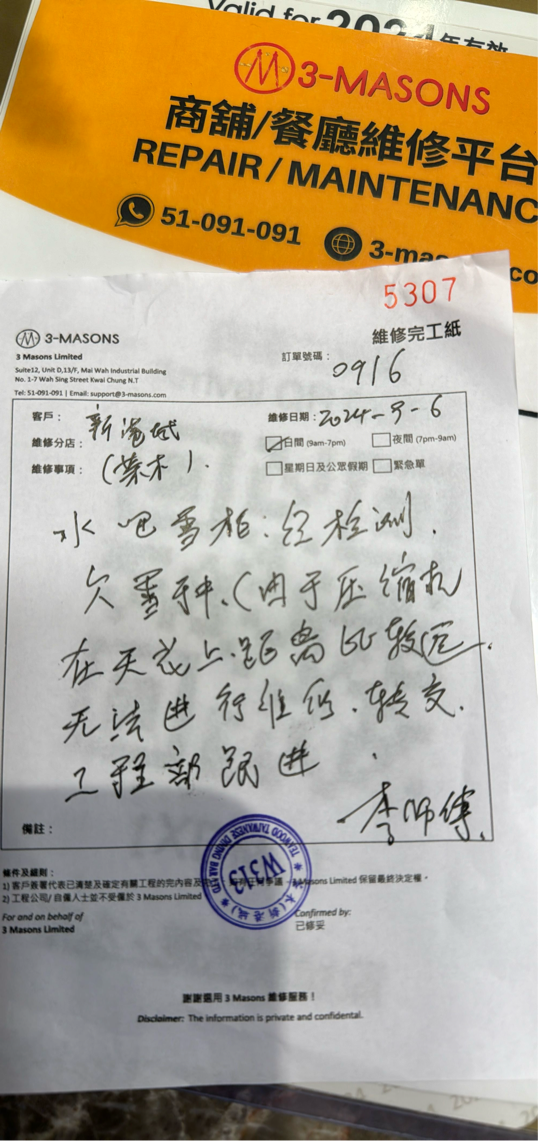 Valid for 2024年有效
3-MASONS
商舖/餐廳維修平台
REPAIR / MAINTENANC
51-091-091
3-mas
co
5307
3-MASONS
維修完工紙
3 Masons Limited
訂單號碼：
0916
Suite12, Unit D,13/F, Mai Wah Industrial Building
No. 1-7 Wah Sing Street Kwai Chung N.T
Tel: 51-091-091 | Email: support@3-masons.com
客戶：
新港城
維修日期：2024-9-6
維修分店：
日間 (9am-7pm) 夜間 (7pm-9am)
維修事項：
星期日及公眾假期 緊急單
水吧雪柜：经检测．
欠雪种．(由于压缩机
在天花上．距离比较远．
无法进行维修．转交．
工程部跟进．
李师傅．
備註：
TEAWOOD TAIWANESE DINING BAR LTD
W313
條件及細則：
1) 客戶簽署代表已清楚及確定有關工程的完內容及
Masons Limited 保留最終決定權。
2) 工程公司/ 自僱人士並不受僱於 3 Masons Limited
For and on behalf of
3 Masons Limited
Confirmed by:
已修妥
謝謝選用 3 Masons 維修服務！
Disclaimer: The information is private and confidental.